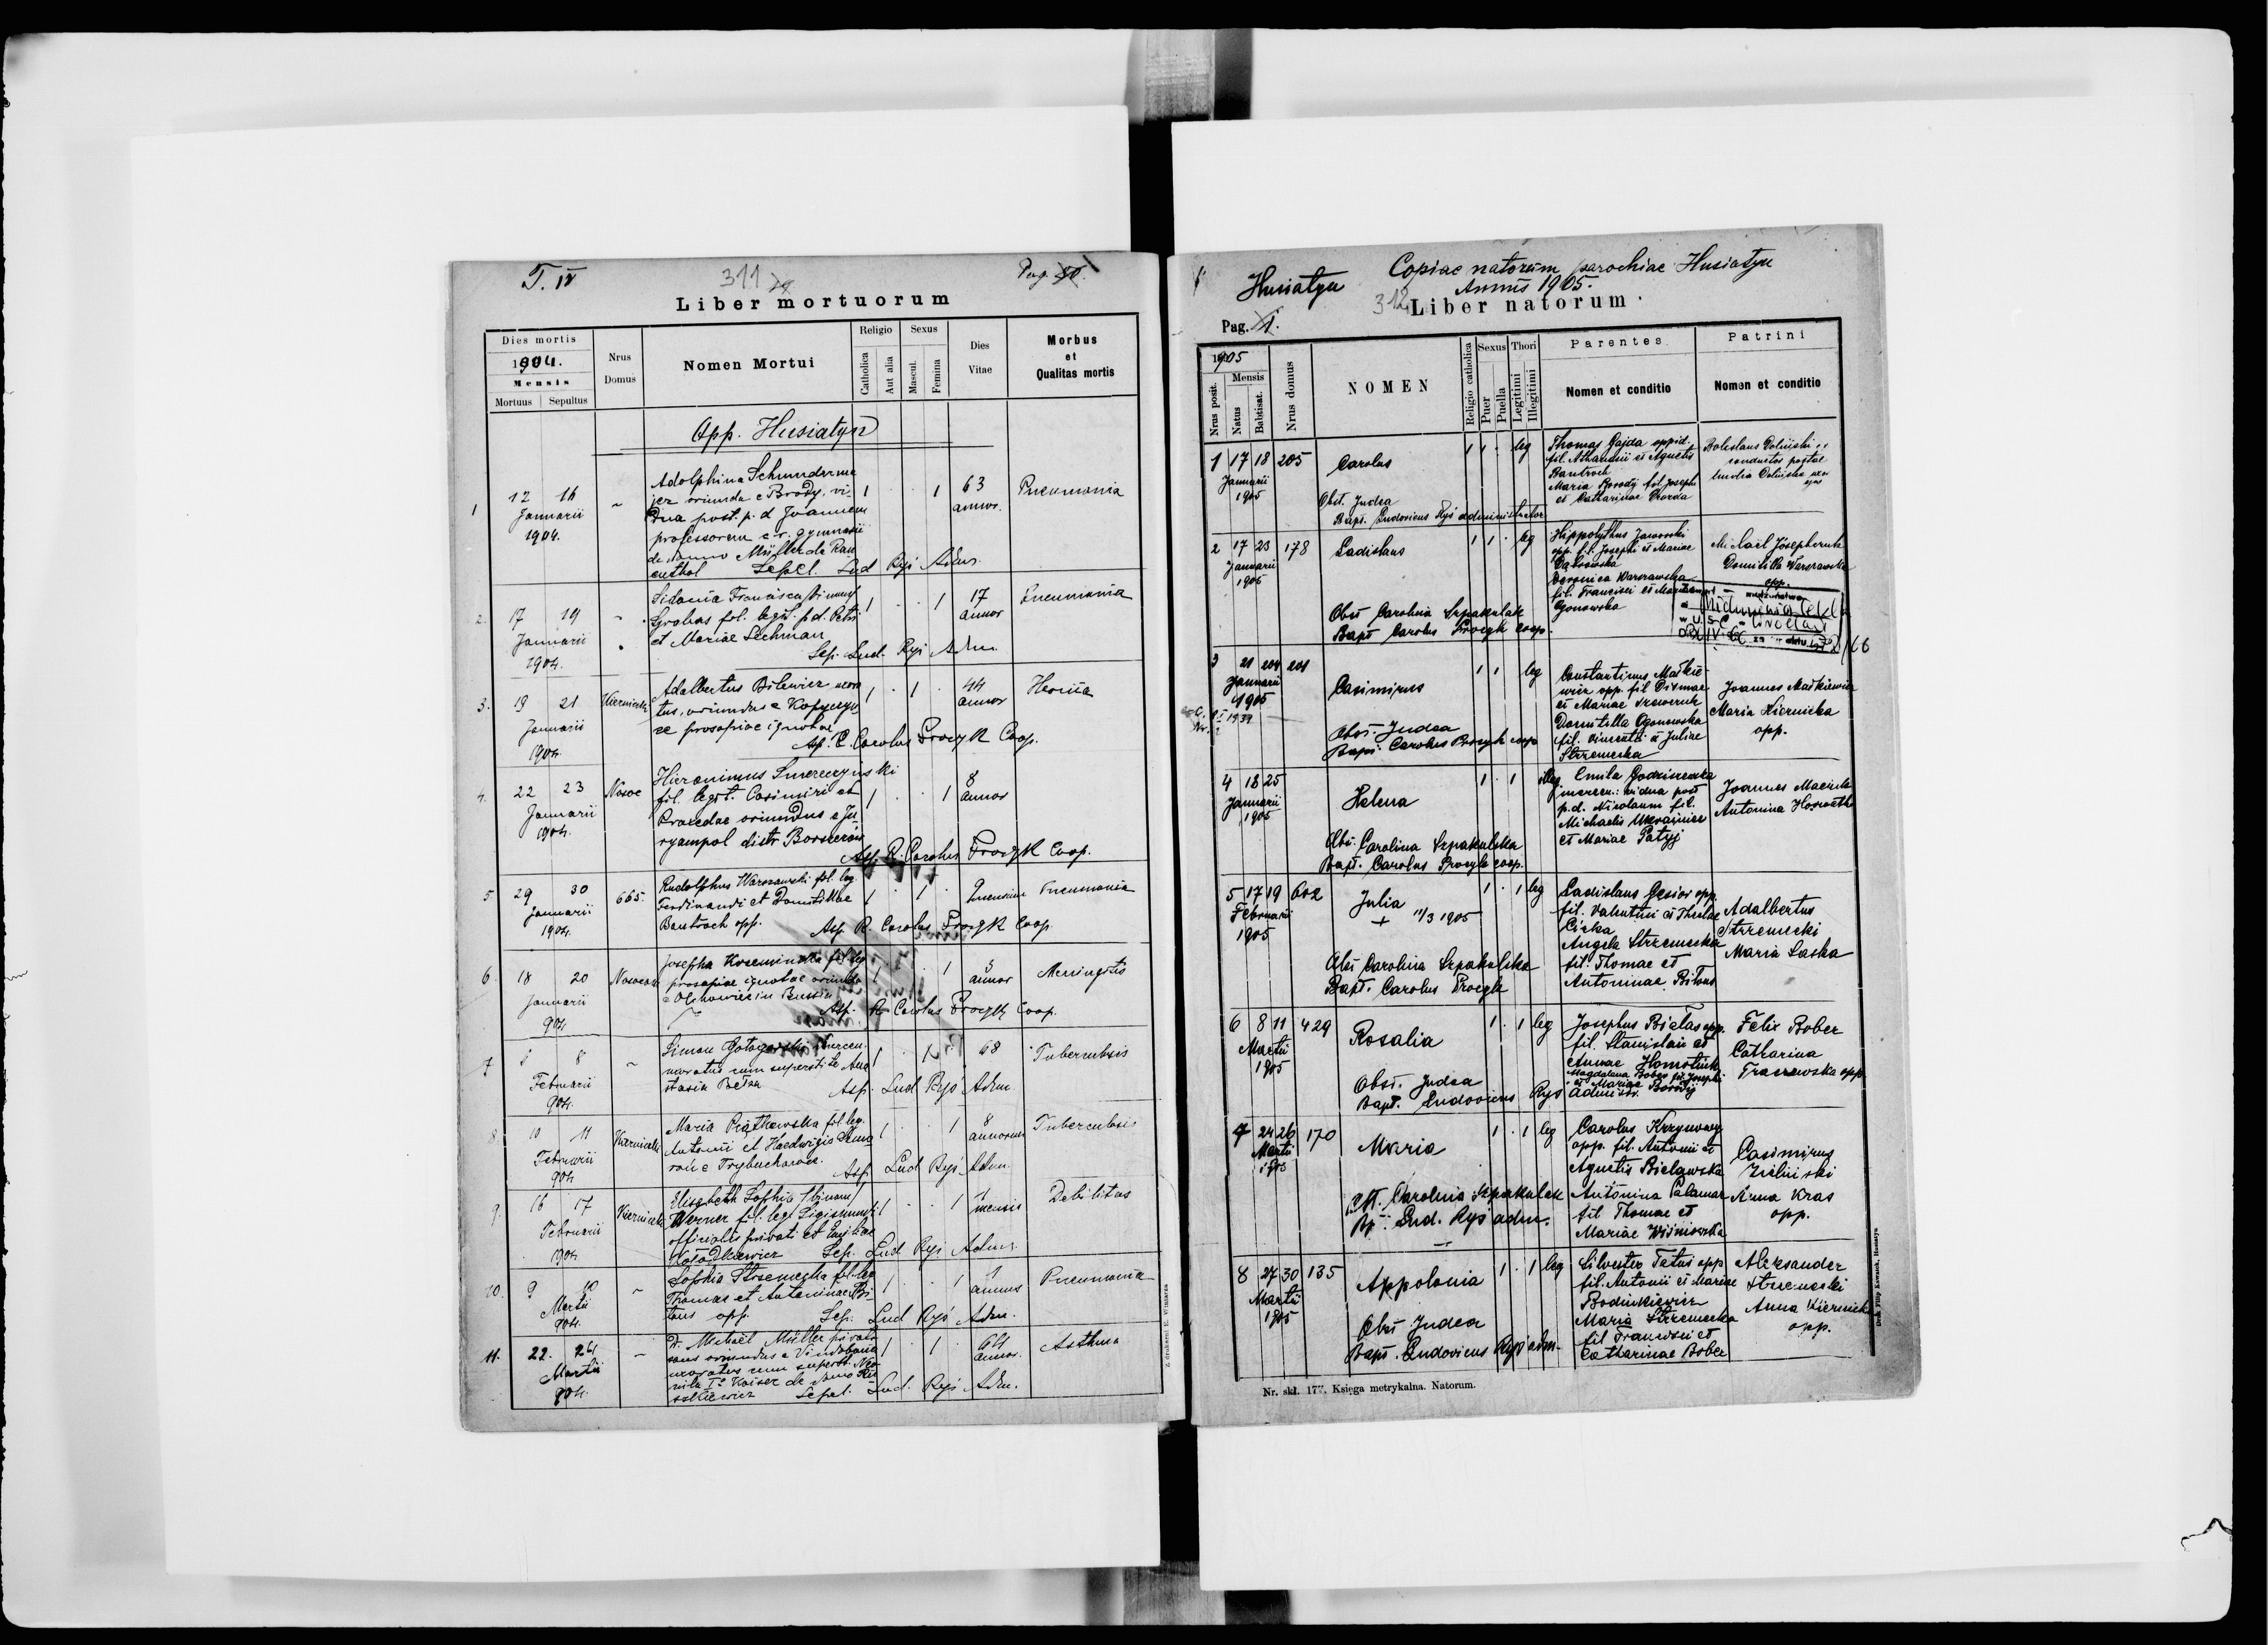 T. IV
311
Pag. 50.
Liber mortuorum
Dies mortis
1904.
Mensis
Mortuus Sepultus
Nrus Domus
Nomen Mortui
Religio
Catholica
Aut alia
Sexus
Mascul.
Femina
Dies Vitae
Morbus
et
Qualitas mortis
Opp. Husiatyn
1 12 16
Januarii
1904.
Adolphina Schmunderma
jer oriunda e Brody, vi-
dua post. p. d. Joannem
professorem c. r. gymnasii
de domo Müller de Rau
enthol Sepel. Lud Ryś Adm.
1 1 63 annor.
Pneumonia
2. 17 19
Januarii
1904.
Sidonia Francisca binom
Grobas fil. legit. p. d. Petri
et Mariae Lechman
Sep. Lud. Ryś Adm.
1 1 17 annor
Pneumonia
3. 19 21
Januarii
1904.
Adalbertus Bilewicz uxora
tus, oriundus e Kopyczyn
ce prosapiae ignotae
Asp. R. Carolus Procyk Coop.
1 1 44 annor
Hernia
4. 22 23
Januarii
1904.
Hieronimus Smereczyński
fil. legit. Casimiri et
Praxedae oriundus e Ju
ryampol distr Borszczów
Asp. R. Carolus Procyk Coop.
1 1 8 annor
5 29 30
Januarii
1904.
665.
Rudolphus Warszawski fil. leg.
Ferdinandi et Domitillae
Bautroch opp.
Asp. R. Carolus Procyk Coop.
1 1
Pneumonia
6. 18 20
Januarii
904
Josepha
prosapiae ignotae oriunda
Asp. R. Carolus Procyk Coop.
1 1 annor
Meningitis
7 8
Februarii
904.
Simon
uxoratus cum superstite Ana
stasia
Asp. Lud Ryś Adm
1 1 68
Tuberculosis
8. 10 11
Februarii
904
Maria Piątkowska fil. leg.
Antonii et Haedwigis
Asp. Lud Ryś Adm.
1 1 8 annorum
Tuberculosis
9. 16 17
Februarii
1904
Elisabeth Sophia (binom)
Werner fil. leg. Sigismundi
officialis privati et Emiliae
Sep. Lud Ryś Adm.
1 1 1 mensis
Debilitas
10. 9 10
Martii
904.
Sophia Strzemecka fil. leg
Thomae et Antoninae Bi-
tous opp. Sep. Lud Ryś Adm.
1 1 1 annus
Pneumonia
11. 22. 24
Martii
904.
Michael Müller privati
sans oriundus e Vindobona
uxoratus cum superst.
Kaiser de domo
Sepel. Lud. Ryś Adm.
1 1 64 annor.
Asthma
Husiatyn
Copiae natorum parochiae Husiatyn
Annus 1905.
312
Liber natorum
Pag. 1.
1905
Nrus posit.
Mensis
Natus
Babtisat.
Nrus domus
NOMEN
Religio catholica
Sexus
Puer
Puella
Thori
Legitimi
Illegitimi
Parentes
Nomen et conditio
Patrini
Nomen et conditio
1 17 18 205
Januarii
1905
Carolus
1 1 leg
Obst. Judea
Bapt. Ludovicus Ryś administrator
Thomas Gajda oppid.
fil. Athanasii et Agnetis
Bautroch
Maria Borodij fil. Josephi
et Catharinae
Boleslaus Doliński
conductor postae
Ludia Dolińska uxor
ejus
2 17 23 178
Januarii
1905
Ladislaus
1 1 leg
Obst Carolina Szpakulak
Bapt Carolus Procyk coop.
Hippolythus Jaworski
opp. fil. Josephi et Mariae
Dąbrowska
Veronica Warszawska
fil. Francisci et Mariae
Ogonowska
Michaël Josephczuk
Domitilla Warszawska
opp.
3 21 24 201
Januarii
1905
Casimirus
1 1 leg
Obst. Judea
Bapt. Carolus Procyk coop
Constantinus Maśkie-
wicz opp. fil Dismae
et Mariae
Domitilla Ogonowska
fil. Vincentii et Juliae
Strzemecka
Joannes Maśkiewicz
Maria Kiernicka
opp.
4 18 25
Januarii
1905
Helena
1 1 illeg
Obst. Carolina Szpakulska
Bapt. Carolus Procyk coop.
Emila Godziszewska
mercen.: vidua post
p. d. Nicolaum fil.
Michaelis Ukrainiec
et Mariae Patyj
Joannes Maciula
Antonina
5 17 19 602
Februarii
1905
Julia
+ 11/3 1905
1 1 leg
Obst Carolina Szpakulska
Bapt. Carolus Procyk
Ladislaus Gąsior opp.
fil. Valentini et Theclae
Angela Strzemecka
fil. Thomae et
Antoninae Bitous
Adalbertus
Strzemecki
Maria Laska
6 8 11 429
Martii
1905
Rosalia
1 1 leg
Obst. Judea
Bapt. Ludovicus Ryś Administr.
Josephus Bielas opp.
fil. Stanislai et
Annae Homotiuk
Magdalena Bober fil. Josephi
et Mariae Borodij
Felix Bober
Catharina
Traczewska opp
7 24 26 170
Martii
1905
Maria
1 1 leg
Obst. Carolina Szpakulak
Bp. Lud. Ryś adm.
Carolus Krzynowy
opp. fil. Antonii et
Agnetis Bielawska
Antonina Palamar
fil Thomae et
Mariae Wiśniowska
Casimirus
Zieliński
Anna Kras
opp.
8 27 30 135
Martii
1905
Appolonia
1 1 leg
Obst Judea
Bapt. Ludovicus Ryś adm.
Silvester Tatus opp
fil. Antonii et Mariae
Bodinkiewicz
Maria Strzemecka
fil Francisci et
Catharinae Bober
Aleksander
Strzemecki
Anna Kiernicka
opp.
Nr. skł. 177. Księga metrykalna. Natorum.